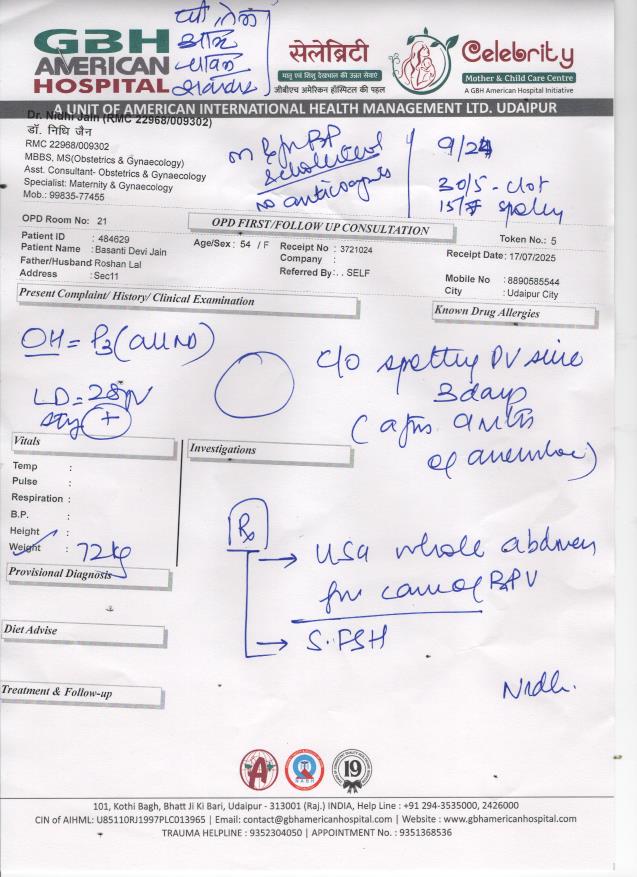 GBH
AMERICAN
HOSPITAL
सेलेब्रिटी
मातृ एवं शिशु देखभाल की उन्नत सेवाएं
जीबीएच अमेरिकन हॉस्पिटल की पहल
Celebrity
Mother & Child Care Centre
A GBH American Hospital Initiative
A UNIT OF AMERICAN INTERNATIONAL HEALTH MANAGEMENT LTD. UDAIPUR
Dr. Nidhi Jain (RMC 22968/009302)
डॉ. निधि जैन
RMC 22968/009302
MBBS, MS(Obstetrics & Gynaecology)
Asst. Consultant- Obstetrics & Gynaecology
Specialist: Maternity & Gynaecology
Mob.: 99835-77455
BP
no
9/24
30/5 - clot
OPD Room No: 21
OPD FIRST/FOLLOW UP CONSULTATION
Token No.: 5
Patient ID : 484629
Patient Name : Basanti Devi Jain
Father/Husband Roshan Lal
Address : Sec11
Age/Sex: 54 / F
Receipt No : 3721024
Company :
Referred By: . . SELF
Receipt Date: 17/07/2025
Mobile No : 8890585544
City : Udaipur City
Present Complaint/ History/ Clinical Examination
Known Drug Allergies
OH = P3 (all ND)
c/o spotting PV since
3 days
LD = 28
+
Vitals
Investigations
Temp :
Pulse :
Respiration :
B.P. :
Height :
Weight : 72 kg
Provisional Diagnosis
Diet Advise
Treatment & Follow-up
Rx
→ USG whole abdomen
for cause of BPV
→ S. FSH
Nidhi.
NABH
19
101, Kothi Bagh, Bhatt Ji Ki Bari, Udaipur - 313001 (Raj.) INDIA, Help Line : +91 294-3535000, 2426000
CIN of AIHML: U85110RJ1997PLC013965 | Email: contact@gbhamericanhospital.com | Website : www.gbhamericanhospital.com
TRAUMA HELPLINE : 9352304050 | APPOINTMENT No. : 9351368536